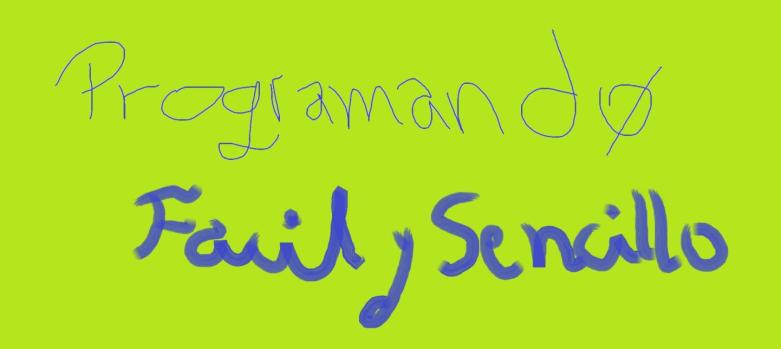 Programandø
Facil y Sencillo